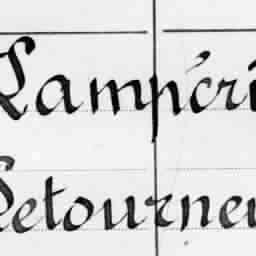 Lampéri
Letourneu